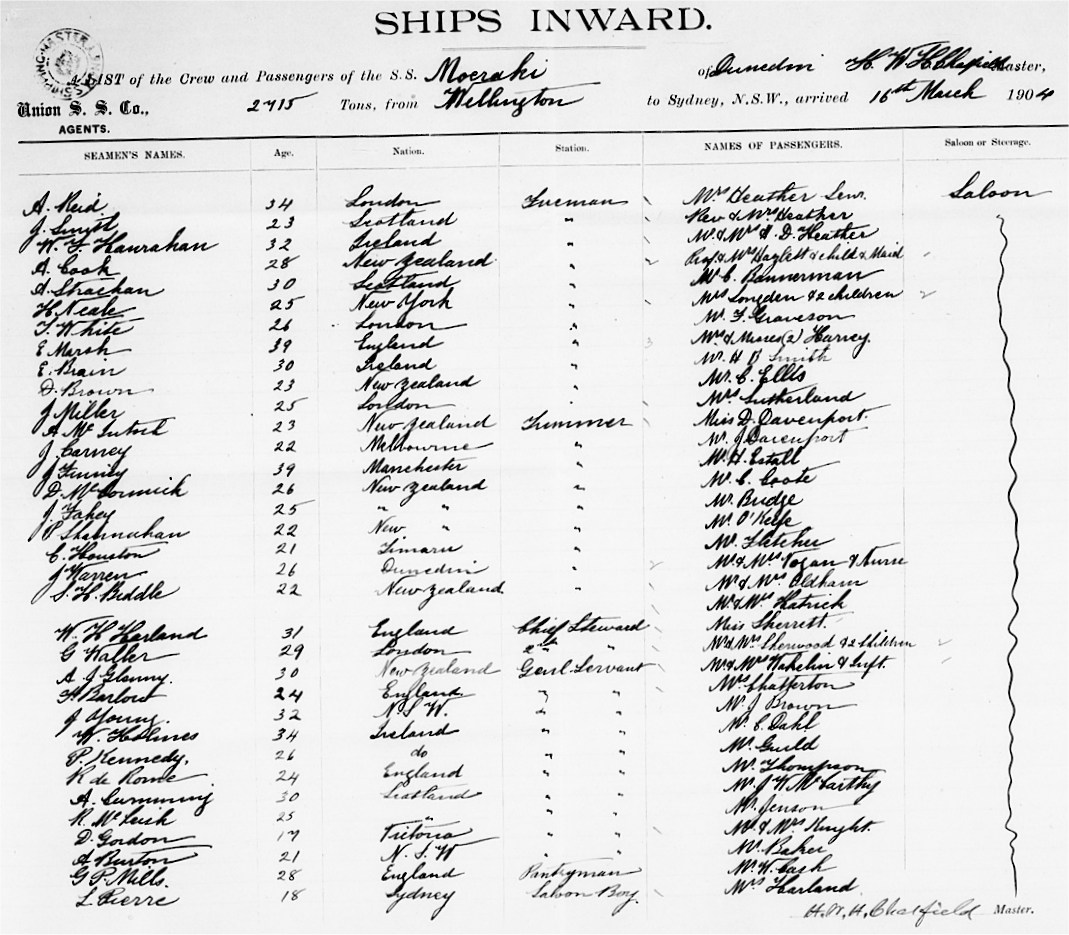 SHIPS INWARD.
A LIST of the Crew and Passengers of the S.S. Moeraki of Dunedin H. W. H. Chatfield Master,
Union S. S. Co., 2715 Tons, from Wellington to Sydney, N.S.W., arrived 16th March 1904
AGENTS.
SEAMEN'S NAMES. Age. Nation. Station. NAMES OF PASSENGERS. Saloon or Steerage.
A. Reid 34 London Fireman Mrs Heather Senr. Saloon
J. 23 Scotland " Rev & Mrs Heather "
W. F. Hanrahan 32 Ireland " Mr & Mrs A. D. Heather
A. Cook 28 New Zealand " Prof & Mrs Haslett & child & Maid
A. Strachan 30 Scotland " Mr C. Bannerman
H. Neale 25 New York " Mrs Longden & 2 children
T. White 26 London " Mr F. Graveson
E. Marsh 39 England " Mrs & Misses (2) Harvey
E. Brain 30 Ireland " Mr H B Smith
D. Brown 23 New Zealand " Mr C. Ellis
J. Miller 25 London " Mrs Sutherland
A. McIntosh 23 New Zealand Trimmer Miss D. Davenport.
J. Carney 22 Melbourne " Mr J Davenport
J 39 Manchester " Mr H. Estall
D. McCormick 26 New Zealand " Mr C. Coote
J. Fahey 25 " " " Mr Budge
P. Shannahan 22 New " " Mr O'Keefe
C. Houston 21 Timaru " Mr Fletcher
J Warren 26 Dunedin " Mr & Mrs Vogan & Nurse
S. H. Biddle 22 New Zealand " Mr & Mrs Oldham
Mr & Mrs Hatrick
W. H Harland 31 England Chief Steward Miss Sherrett.
G Waller 29 London 2nd " Mr & Mrs Sherwood & 2 Children
A. J Glanny. 30 New Zealand Genl. Servant Mr & Mrs Wakelin & Inft
F. Barlow 24 England " " Mrs Chatterton
J Young. 32 N. S. W. " " Mr J Brown
W. Holmes 34 Ireland " " Mr C. Dahl
P. Kennedy. 26 do " " Mr Guild
R de Rome 24 England " " Mr Thompson
A. Cumming 30 Scotland " " Mr J W McCarthy
R. McLeish 25 " " " Mr Jenson
D. Gordon 17 Victoria " " Mr & Mrs Knight.
A Burton 21 N. S. W " " Mr Baker
G. P. Mills. 28 England Pantryman Mr W. Cash
L. Pierre 18 Sydney Saloon Boy. Mrs Harland.
H. W. H. Chatfield Master.